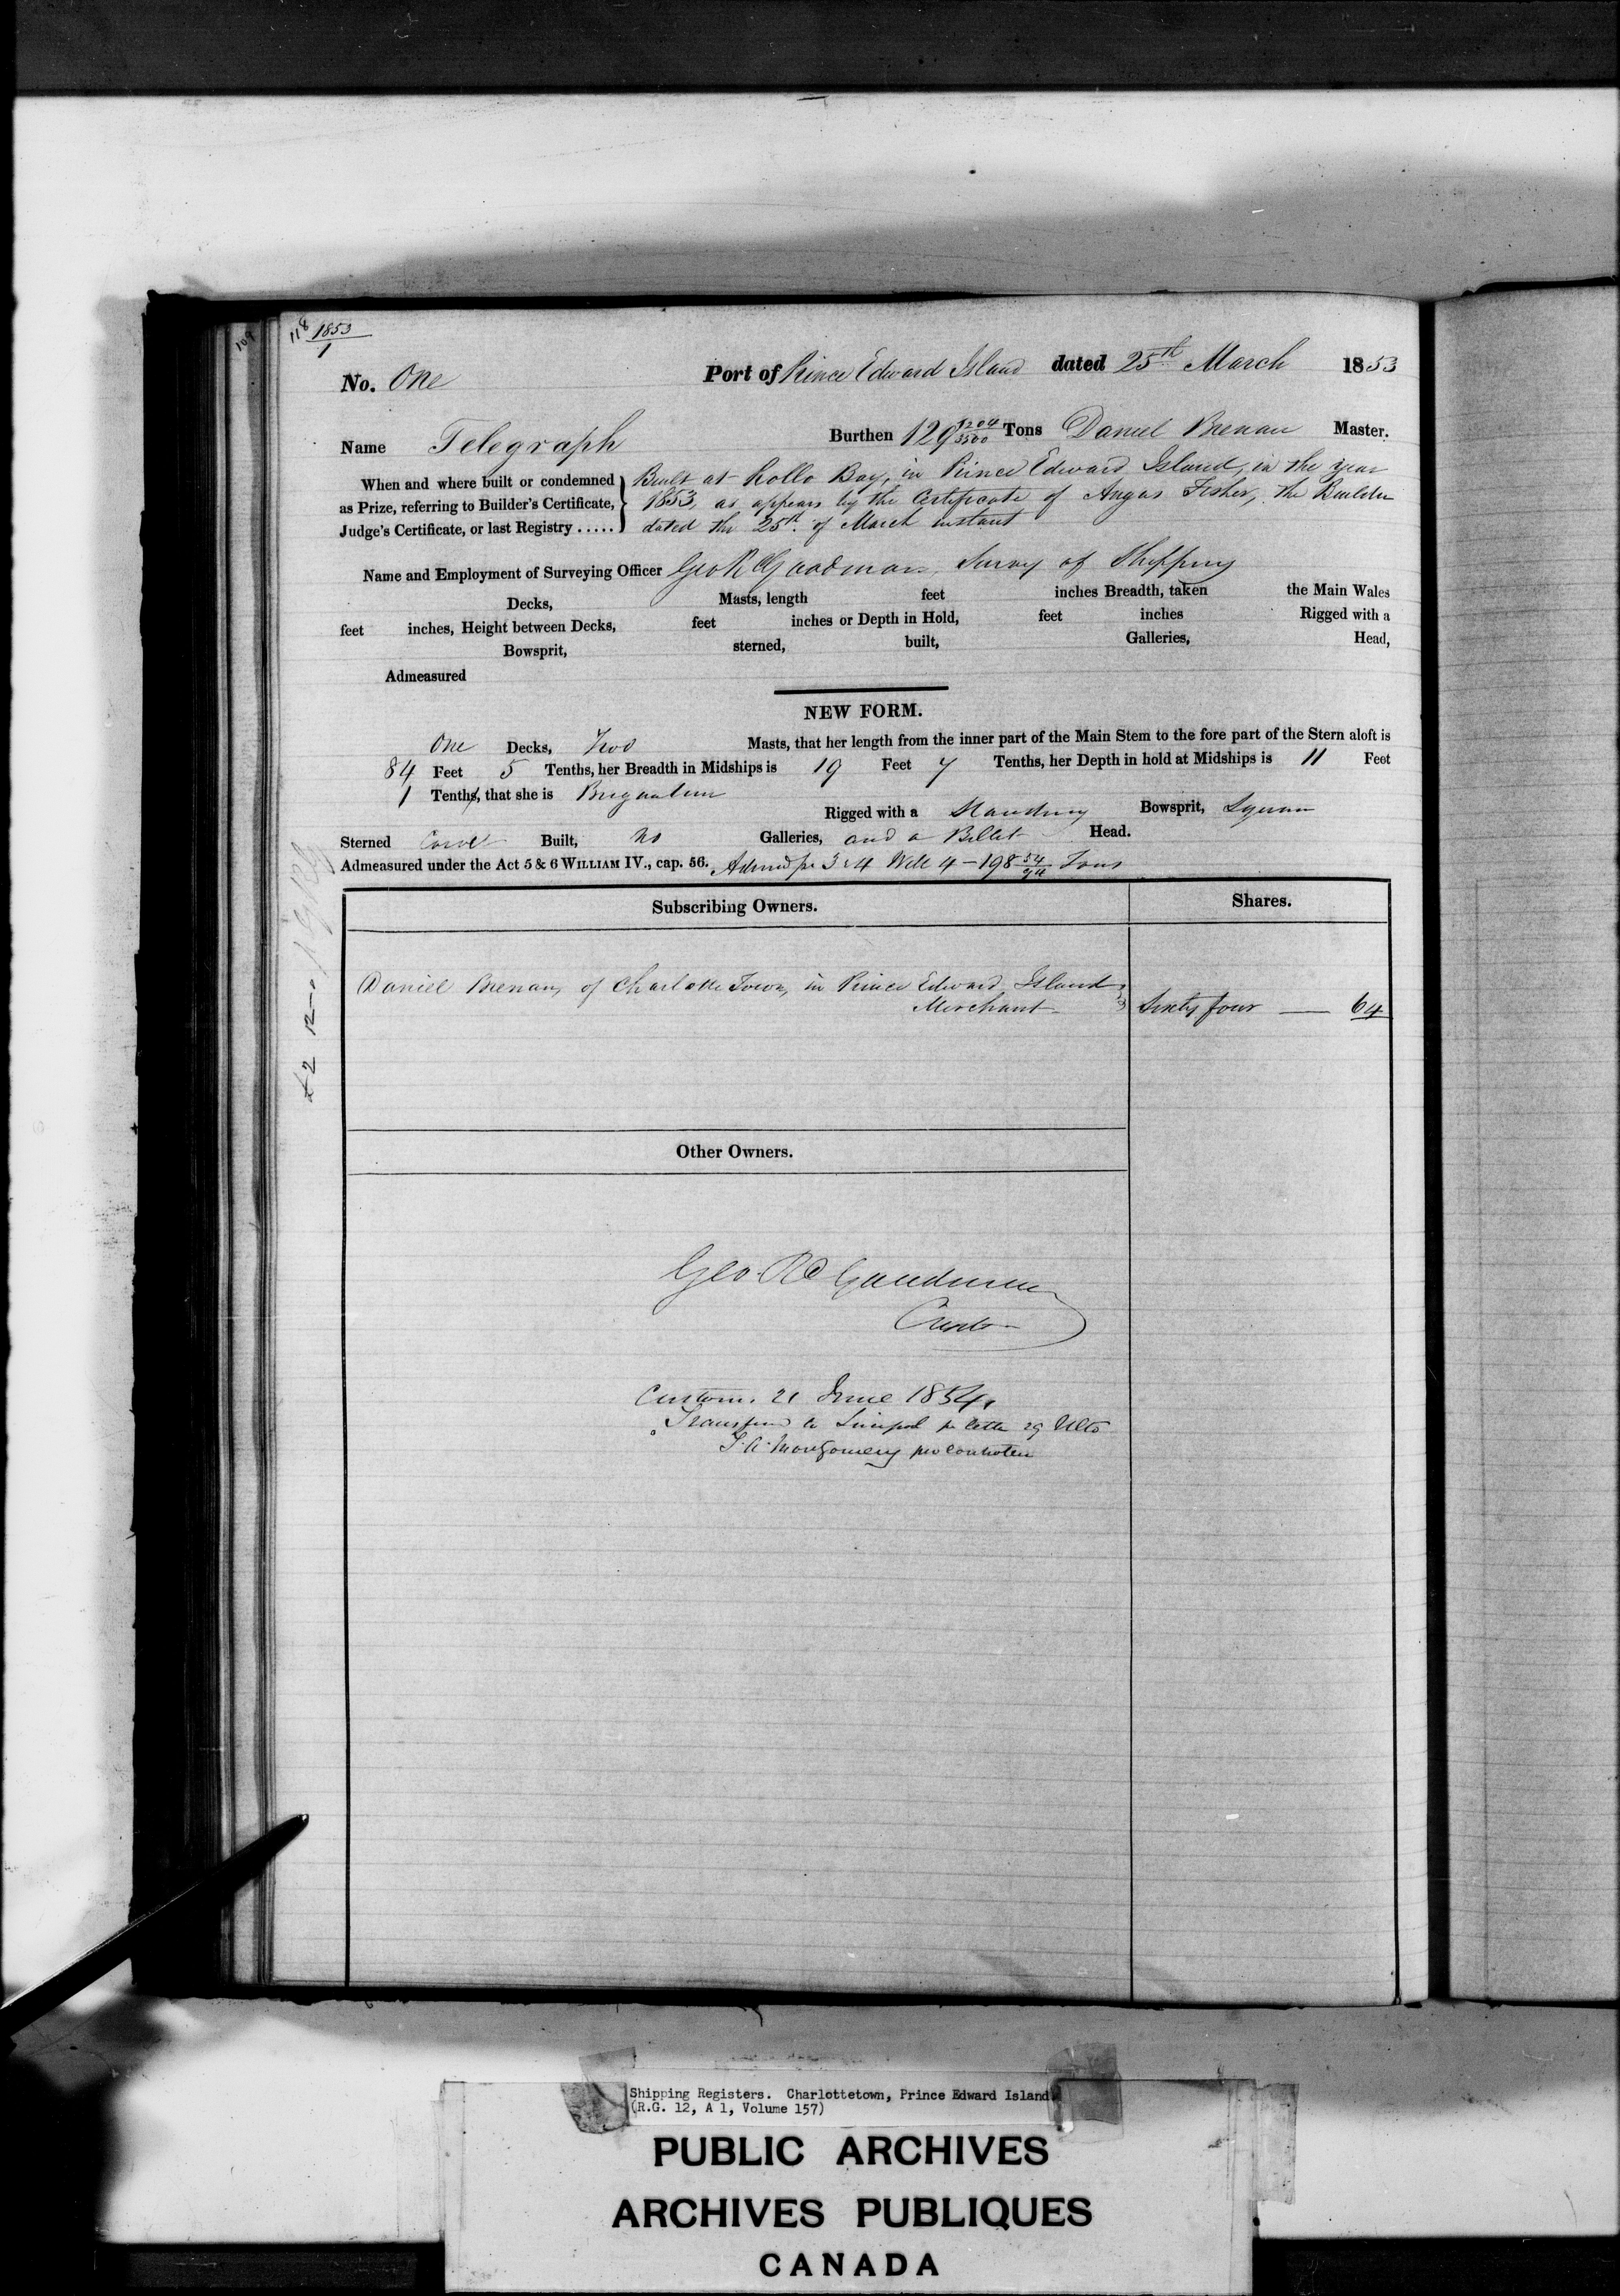 109
118
1853
1
No. One Port of Prince Edward Island dated 25th March 1853
Name Telegraph Burthen 129 1204/3500 Tons Daniel Brenan Master.
When and where built or condemned Built at Rollo Bay, in Prince Edward Island, in the year
as Prize, referring to Builder's Certificate, 1853, as appears by the Certificate of Angus Fisher, the Builder
Judge's Certificate, or last Registry ..... dated the 25th of March instant
Name and Employment of Surveying Officer Geo R Goodman, Survy of Shipping
Decks, Masts, length feet inches Breadth, taken the Main Wales
feet inches, Height between Decks, feet inches or Depth in Hold, feet inches Rigged with a
Bowsprit, sterned, built, Galleries, Head,
Admeasured
NEW FORM.
One Decks, Two Masts, that her length from the inner part of the Main Stem to the fore part of the Stern aloft is
84 Feet 5 Tenths, her Breadth in Midships is 19 Feet 7 Tenths, her Depth in hold at Midships is 11 Feet
1 Tenths, that she is Brigantine
Rigged with a Standing Bowsprit, Square
Sterned Carvel Built, no Galleries, and a Billet Head.
Admeasured under the Act 5 & 6 WILLIAM IV., cap. 56. Admd pr 3 & 4 Will 4 - 198 54/94 Tons
Subscribing Owners. Shares.
Daniel Brenan, of Charlotte Town, in Prince Edward Island
Merchant Sixty four — 64
£2 12
Other Owners.
Geo. R Goodman
Customs. 21 June 1854,
Transferred to Liverpool pr letter 29 Ulto
T. A. Montgomery pro Controller
Shipping Registers. Charlottetown, Prince Edward Island
(R.G. 12, A 1, Volume 157)
PUBLIC ARCHIVES
ARCHIVES PUBLIQUES
CANADA